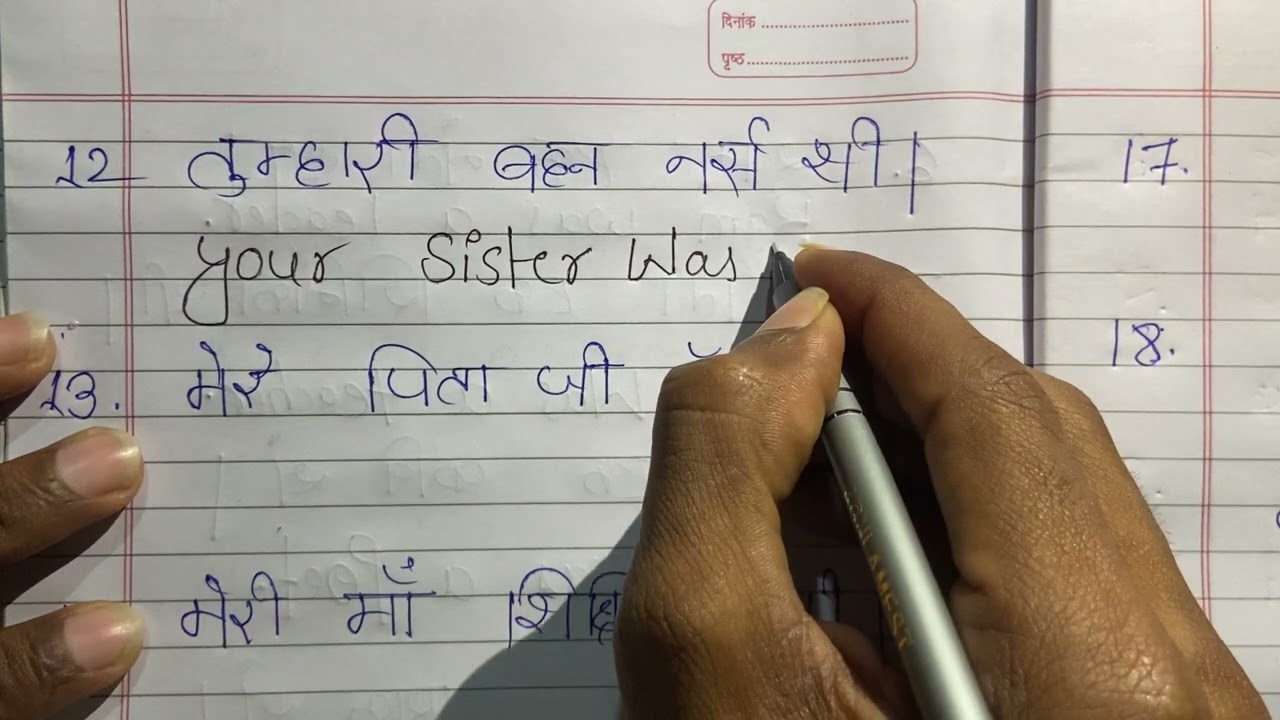 दिनांक
पृष्ठ
12 तुम्हारी बहन नर्स थी।
your Sister Was
13. मेरे पिता जी
मेरी माँ
17.
18.